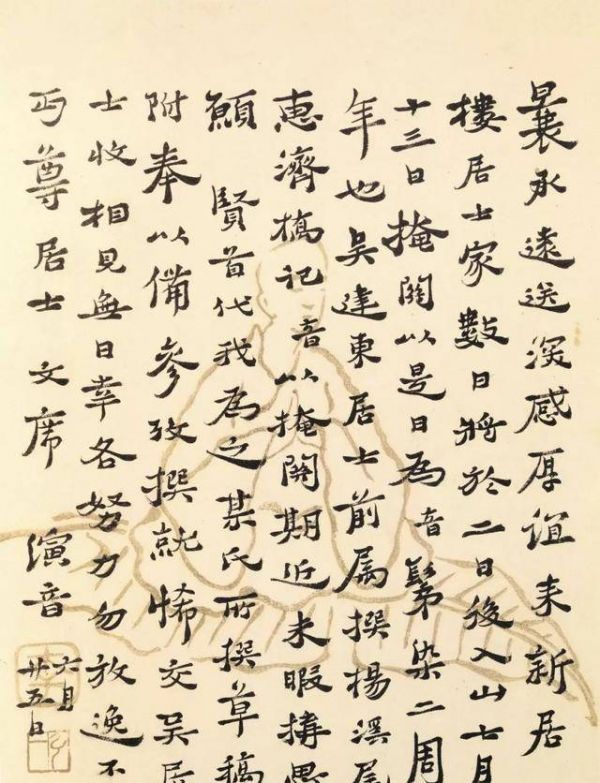 曩承遠送深感厚誼来新居
樓居士家數日將於二日後入山七月
十三日掩關以是日為音鬀染二周
年也吴建東居士前属撰楊溪尾
惠濟橋記音以掩關期近未暇搆思
願 賢首代我為之某氏所撰草稿
附奉以備參攷撰就悕交吴居
士收相見無日幸各努力勿放逸不
丏尊居士文席 演音
六月
廿五日